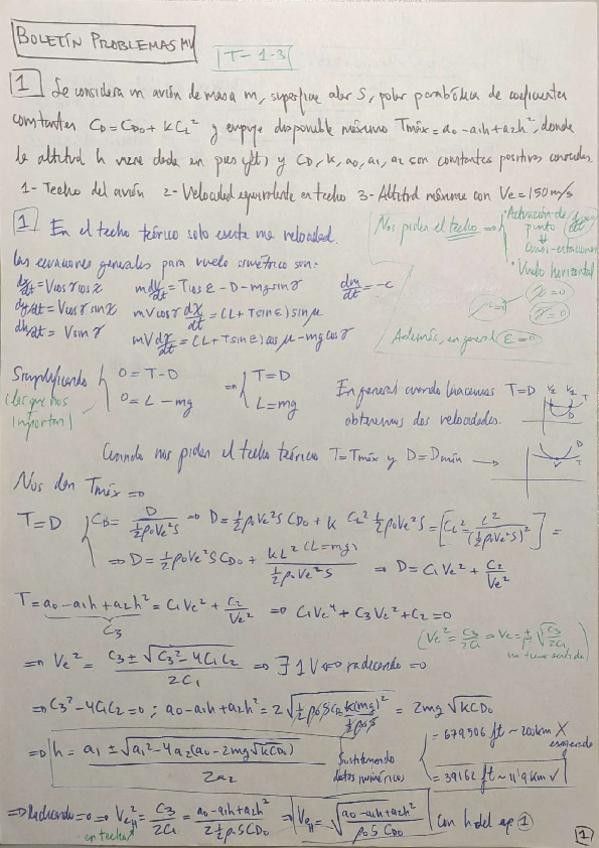 BOLETÍN PROBLEMAS MV
T-1-3
1 Se considera un avión de masa m, superficie alar S, polar parabólica de coeficientes
constantes CD=CD0+KCL² y empuje disponible máximo Tmáx=a0-a1h+a2h², donde
la altitud h viene dada en pies (ft) y CD, K, a0, a1, a2 son constantes positivas conocidas.
1- Techo del avión 2- Velocidad equivalente en techo 3- Altitud máxima con Ve=150m/s
1 En el techo teórico solo existe una velocidad.
Nos piden el techo ⇒
Actuación de punto
≠
Cuasi-estacionario
• Vuelo horizontal
Además, en general ε=0
Las ecuaciones generales para vuelo simétrico son:
dx/dt = Vcosγcosχ m dV/dt = Tcosε - D - mg sinγ dm/dt = -c
dy/dt = Vcosγ sinχ mVcosγ dχ/dt = (L+Tsinε) sinμ
dh/dt = V sinγ mV dγ/dt = (L+Tsinε) cosμ - mg cosγ
γ=0
Simplificando { 0=T-D ⇒ { T=D
(las que nos importan) 0=L-mg L=mg
En general cuando hacemos T=D
obtenemos dos velocidades.
Cuando nos piden el techo teórico T=Tmáx y D=Dmín →
Nos dan Tmáx ⇒
T=D { CD = D/(½ρ0Ve²S) ⇒ D=½ρ0Ve²S CD0 + K CL² ½ρ0Ve²S = [CL² = L²/(½ρ0Ve²S)²] =
⇒ D=½ρ0Ve²S CD0 + KL²(L=mg)/(½ρ0Ve²S) ⇒ D=C1Ve² + C2/Ve²
T=a0-a1h+a2h² = C1Ve² + C2/Ve² ⇒ C1Ve⁴ + C3Ve² + C2=0
C3
(Ve² = C3/2C1 ⇒ Ve = ± √(C3/2C1)
no tiene sentido)
⇒ Ve² = (C3 ± √(C3²-4C1C2))/2C1 ⇒ ∃ 1V ⇔ radicando = 0
⇒ C3²-4C1C2=0 ; a0-a1h+a2h² = 2√(½ρ0SCD0 K(mg)²/(½ρ0S)) = 2mg √(KCD0)
⇒ h = (a1 ± √(a1²-4a2(a0-2mg√(KCD0))))/2a2
Sustituyendo
datos numéricos
= 679506 ft ~ 200km X
= 39162 ft ~ 11'9 km ✓
⇒ Radicando=0 ⇒ VeH² = C3/2C1 = (a0-a1h+a2h²)/(2½ρ0SCD0) ⇒ VeH = √((a0-a1h+a2h²)/(ρ0SCD0)) con h del ap 1
en techo
1